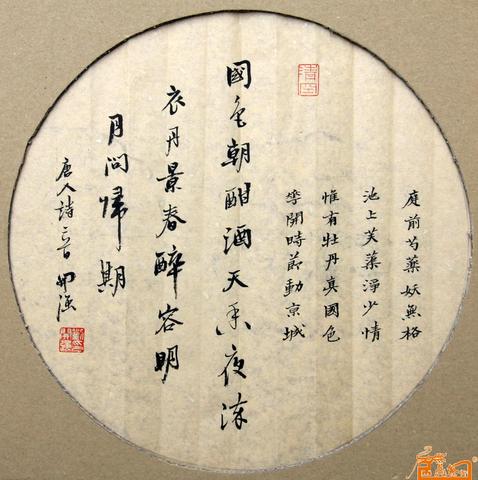 庭前芍藥妖無格
池上芙蕖淨少情
惟有牡丹真國色
華開時節動京城
國色朝酣酒天香夜染
衣丹景春醉容明
月問歸期
唐人詩二首